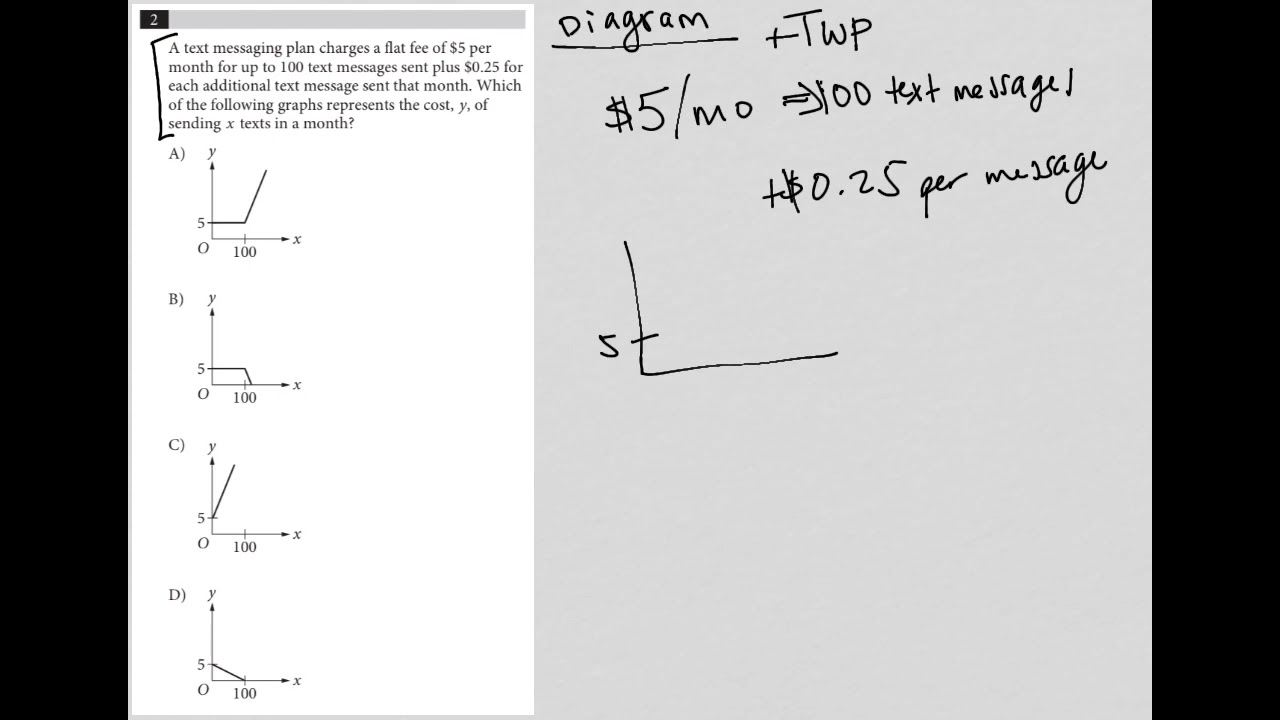 2
A text messaging plan charges a flat fee of $5 per
month for up to 100 text messages sent plus $0.25 for
each additional text message sent that month. Which
of the following graphs represents the cost, y, of
sending x texts in a month?
A) y
5
O 100 x
B) y
5
O 100 x
C) y
5
O 100 x
D) y
5
O 100 x
Diagram + TWP
$5/mo ⇒ 100 text messages
+$0.25 per message
5